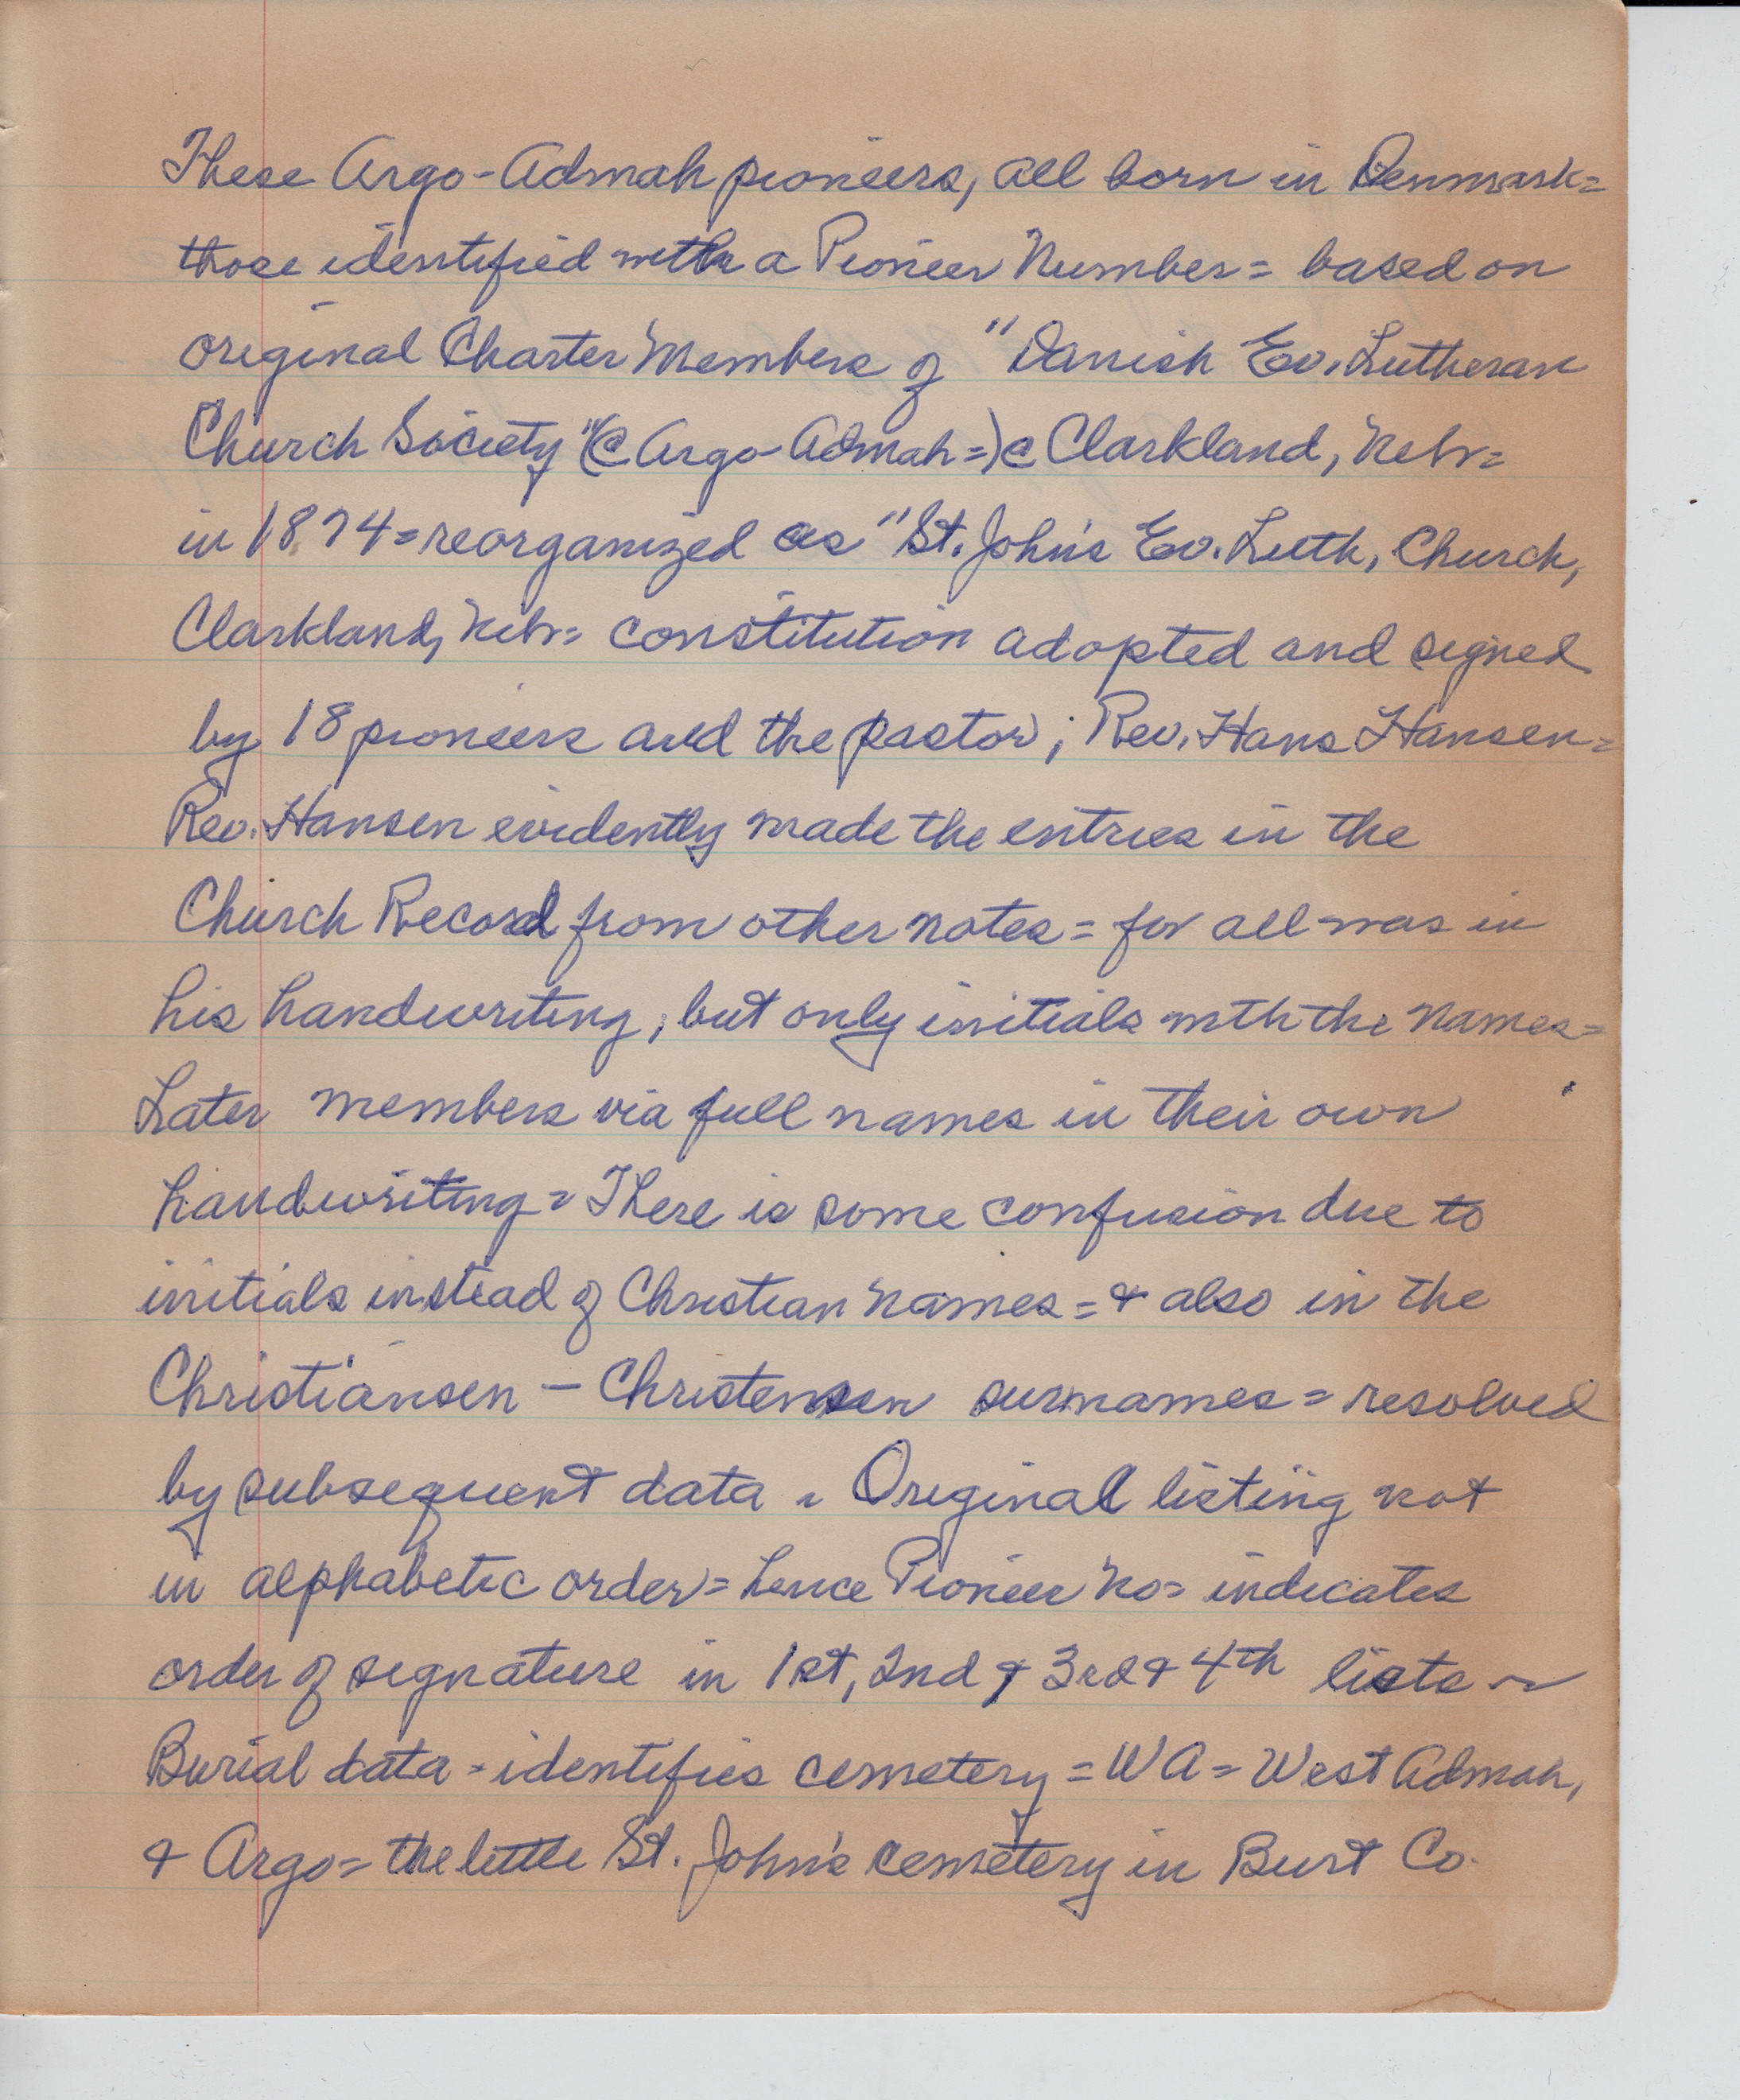 These Argo-Admah pioneers, all born in Denmark=
those identified with a Pioneer Number = based on
original Charter Members of "Danish Ev. Lutheran
Church Society" (@ Argo-Admah=) @ Clarkland, Nebr=
in 1874=reorganized as "St. John's Ev. Luth, Church,
Clarkland, Nebr= constitution adopted and signed
by 18 pioneers and the pastor; Rev. Hans Hansen=
Rev. Hansen evidently made the entries in the
Church Record from other notes = for all was in
his handwriting, but only initials with the names=
Later members via full names in their own
handwriting = There is some confusion due to
initials instead of Christian names = & also in the
Christiansen - Christensen surnames = resolved
by subsequent data = Original listing not
in alphabetic order = hence Pioneer No= indicates
order of signature in 1st, 2nd & 3rd & 4th lists ~
Burial data - identifies cemetery = WA = West Admah,
& Argo = the little St. John's cemetery in Burt Co.